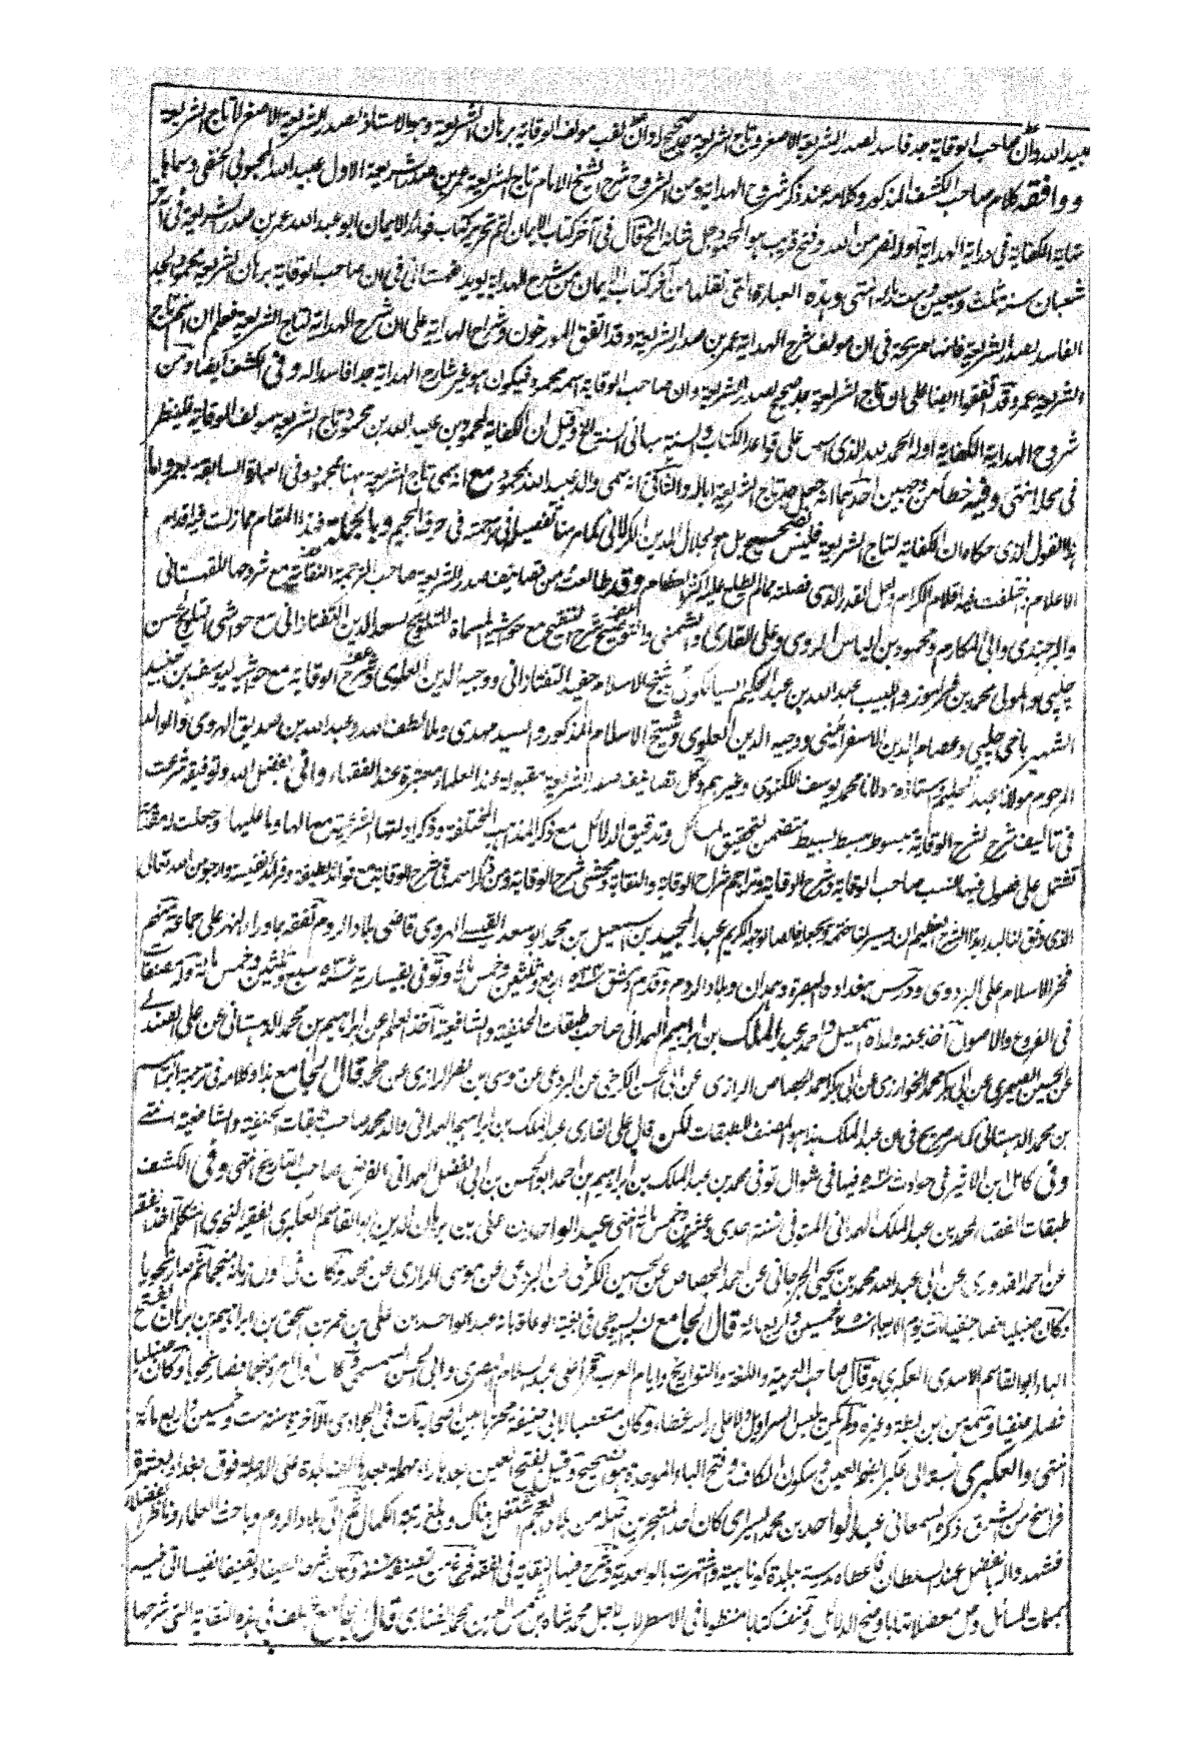 عبيد الله وان صاحب الوقاية جد فاسد لصدر الشريعة الاصغر وتاج الشريعة جد صحيح له وان لقب مولف الوقاية برهان الشريعة وهو الاستاذ لصدر الشريعة الاصغر لا تاج الشريعة
ووافقه كلام صاحب الكشف المذكور وكلامه عند ذكر شروح الهداية ومن الشروح شرح الشيخ الامام تاج الشريعة عمر بن صدر الشريعة الاول عبيد الله المحبوبي الحنفي وسماه
نهاية الكفاية في دراية الهداية اوله نصر من الله وفتح قريب هو المحمود جل شانه الخ قال في آخر كتاب الايمان تم تحرير كتاب فوائد الايمان ابو عبد الله عمر بن صدر الشريعة في آخر
شعبان سنة ثلث وسبعين وستمائة انتهى وهذه العبارة التي نقلها من آخر كتاب الايمان من شرح الهداية يويد القهستاني في ان صاحب الوقاية برهان الشريعة محمود الجد
الفاسد لصدر الشريعة فانها صريحة في ان مولف شرح الهداية عمر بن صدر الشريعة وقد اتفق المورخون وشراح الهداية على ان شرح الهداية لتاج الشريعة فعلم ان اسم تاج
الشريعة عمر وقد اتفقوا ايضا على ان تاج الشريعة جد صحيح لصدر الشريعة وان صاحب الوقاية اسمه محمود فيكون هو غير شارح الهداية جدا فاسدا له وفي الكشف ايضا ومن
شروح الهداية الكفاية اوله الحمد لله الذي اسس على قواعد الكتاب والسنة مباني السنة الخ وقيل ان الكفاية لمحمود بن عبيد الله بن محمود تاج الشريعة مولف الوقاية فلينظر
في محله انتهى وفيه خطأ من وجهين احدهما انه جعل جد تاج الشريعة اباه والثاني انه سمى والد عبيد الله بمحمود مع انه سمى تاج الشريعة ههنا بمحمود وفي العبارة السابقة بعمر واما
هذا القول الذي حكاه ان الكفاية لتاج الشريعة فليس بصحيح بل هو لجلال الدين الكرلاني كما مر منا تفصيله في ترجمته في حرف الجيم وبالجملة فهذا المقام مما زلت فيه اقدام
الاعلام واختلفت فيه اقلام الكرام ولعل القدر الذي فصلته مما لم يطلع عليه اكثر العظام وقد طالعت من تصانيف صدر الشريعة صاحب الترجمة النقاية مع شروحها للقهستاني
والبرجندي وابي المكارم ومحمود بن الياس الرومي وعلي القاري والشمني والتوضيح شرح التنقيح مع حواشيه المسماة التلويح لسعد الدين التفتازاني مع حواشي التلويح لحسن
چلپي والمولى محمد بن فرامرز واللبيب عبد الله بن عبد الحكيم السيالكوتي وشيخ الاسلام حفيد التفتازاني ووجيه الدين العلوي وشرح الوقاية مع حواشيه ليوسف بن جنيد
الشهير باخي چلپي وعصام الدين الاسفرائني ووجيه الدين العلوي وشيخ الاسلام المذكور والسيد مهدي وملا لطف الله وعبد الله بن صديق الهروي والوالد
المرحوم مولانا عبد الحليم واستاذه مولانا محمد يوسف اللكنوي وغيرهم وكل تصانيف صدر الشريعة مقبولة عند العلماء معتبرة عند الفقهاء واني بفضل الله وتوفيقه شرعت
في تاليف شرح لشرح الوقاية مبسوط ببسط بسيط متضمن لتحقيق المسائل وتدقيق الدلائل مع ذكر المذاهب المختلفة وذكر ادلتها الشرعية مع مالها وما عليها وجعلت له مقدمة
تشتمل على فصول فيها النسب صاحب الوقاية وشرح الوقاية وتراجم شراح الوقاية والنقاية ومحشي شرح الوقاية ومن ذكر اسمه في شرح الوقاية مع فوائد لطيفة وفرائد نفيسة وارجو من الله تعالى
الذي وفق لنا لبداية هذا الشرح العظيم ان ييسر لنا ختمه ويجعله خالصا لوجهه الكريم عبد المجيد بن اسمعيل بن محمد ابو سعد القيسي الهروي قاضي بلاد الروم تفقه بما وراء النهر على جماعة منهم
فخر الاسلام علي البزدوي ودرس ببغداد والبصرة وهمدان وبلاد الروم وقدم دمشق سنة ٥٣٤ اربع وثلثين وخمس مائة وتوفي بقيسارية سنة سبع وثلثين وخمس مائة وله مصنفات
في الفروع والاصول اخذ عنه ولداه اسمعيل واحمد عبد الملك بن ابراهيم الهمداني صاحب طبقات الحنفية والشافعية اخذ العلم عن ابراهيم بن محمد الدهستاني عن علي الصندلي
عن الحسين الصيمري عن ابي بكر محمد الخوارزمي عن ابي بكر احمد الجصاص الرازي عن ابي الحسن الكرخي عن البردعي عن موسى بن نصر الرازي عن محمد قال الجامع هذا وكلامه في ترجمة ابراهيم
بن محمد الدهستاني كما مر صريح في ان عبد الملك هذا هو المصنف للطبقات لكن قال علي القاري عبد الملك بن ابراهيم الهمداني والد محمد صاحب طبقات الحنفية والشافعية انتهى
وفي كامل ابن الاثير في حوادث سنة ٥٢١ فيها في شوال توفي محمد بن عبد الملك بن ابراهيم بن احمد ابو الحسن بن ابي الفضل الهمداني الفرضي صاحب التاريخ انتهى وفي الكشف
طبقات الفقهاء لمحمد بن عبد الملك الهمداني المتوفى سنة احدى وعشرين وخمس مائة انتهى عبد الواحد بن علي بن برهان الدين ابو القاسم العكبري الفقيه النحوي المتكلم اخذ الفقه
عن احمد القدوري عن ابي عبد الله محمد بن يحيى الجرجاني عن احمد الجصاص عن حسين الكرخي عن البردعي عن موسى الرازي عن محمد وكان في اول زمانه منجما ثم صار نحويا
وكان حنبليا فصار حنفيا مات يوم الاربعاء سنة خمسين واربع مائة قال الجامع نسبه السيوطي في بغية الوعاة بانه عبد الواحد بن علي بن عمر بن اسحق بن ابراهيم بن برهان بفتح
الباء ابو القاسم الاسدي العكبري وقال صاحب العربية واللغة والتواريخ وايام العرب قرأ على عبد السلام البصري وابي الحسن السمسمي وكان اول امره منجما فصار نحويا وكان حنبليا
فصار حنفيا وسمع من ابن بطة وغيره ولم يكن يلبس السراويل ولا على راسه غطاء وكان متعصبا لابي حنيفة محترما بين اصحابه مات في جمادى الآخرة سنة ست وخمسين واربع مائة
انتهى والعكبري نسبة الى عكبرا بضم العين وسكون الكاف وفتح الباء الموحدة هو الصحيح وقيل بفتح العين بعد باء راء مهملة بعدها الف بلدة على الدجلة فوق بغداد بعشرة
فراسخ من الشرق ذكره السمعاني عبد الواحد بن محمد السيرامي كان احد المتبحرين ارتحل من بلاد العجم واشتغل هناك وبلغ رتبة الكمال ثم اتى بلاد الروم وباحث العلماء وناظر الفضلاء
فشهدوا له بالفضل عند السلطان فاعطاه مدرسة ببلدة كوتاهية واشتهرت بالواحدية وشرح فيها النقاية في الفقه فرغ من تصنيفه سنة وكان شرحا لطيفا وتصنيفا نفيسا اتى فيه
بمهمات المسائل وحل معضلاتها باوضح الدلائل وصنف كتابا منظوما في الاسطرلاب لاجل محمد شاه بن شمس الدين محمد الفناري قال الجامع اختلف في هذه النقاية التي شرحها